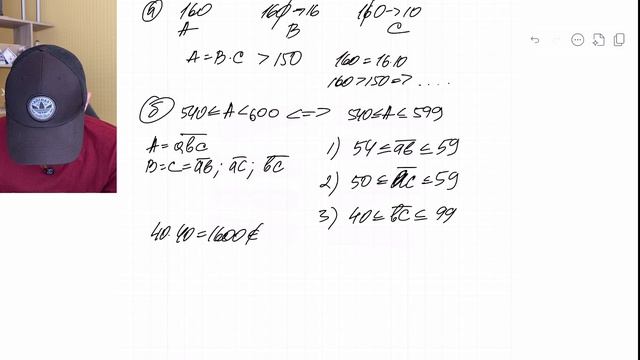 а) 160 160→16 160→10
A B C
A = B·C > 150 160 = 16·10
160 > 150 => ....
б) 540 ≤ A < 600 <=> 540 ≤ A ≤ 599
A = abc 1) 54 ≤ ab ≤ 59
B = C = ab; ac; bc 2) 50 ≤ ac ≤ 59
3) 40 ≤ bc ≤ 99
40·40 = 1600